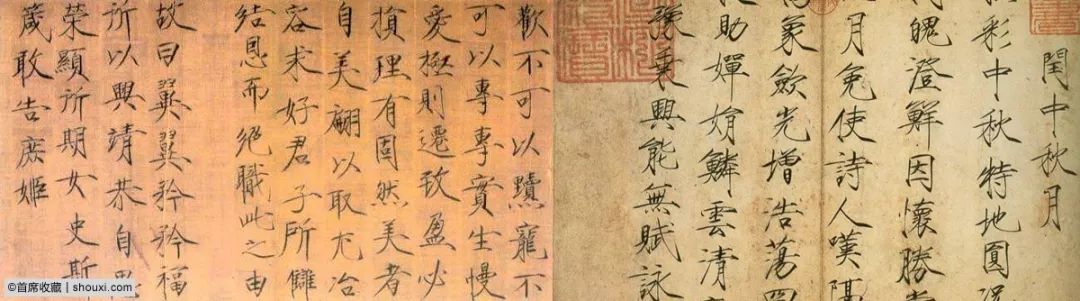 歡不可以黷寵不
可以專專實生慢
愛極則遷致盈必
損理有固然美者
自美翩以取尤冶
容求好君子所讎
結恩而絕職此之由
故曰翼翼矜矜福
所以興靖恭自思
榮顯所期女史斯
箴敢告庶姬
閏中秋月
彩中秋特地圓
魄澄鮮因懷勝
月免使詩人嘆隔
象歛光增浩蕩四
助嬋娟鱗雲清
豫乘興能無賦詠
©首席收藏 | shouxi.com